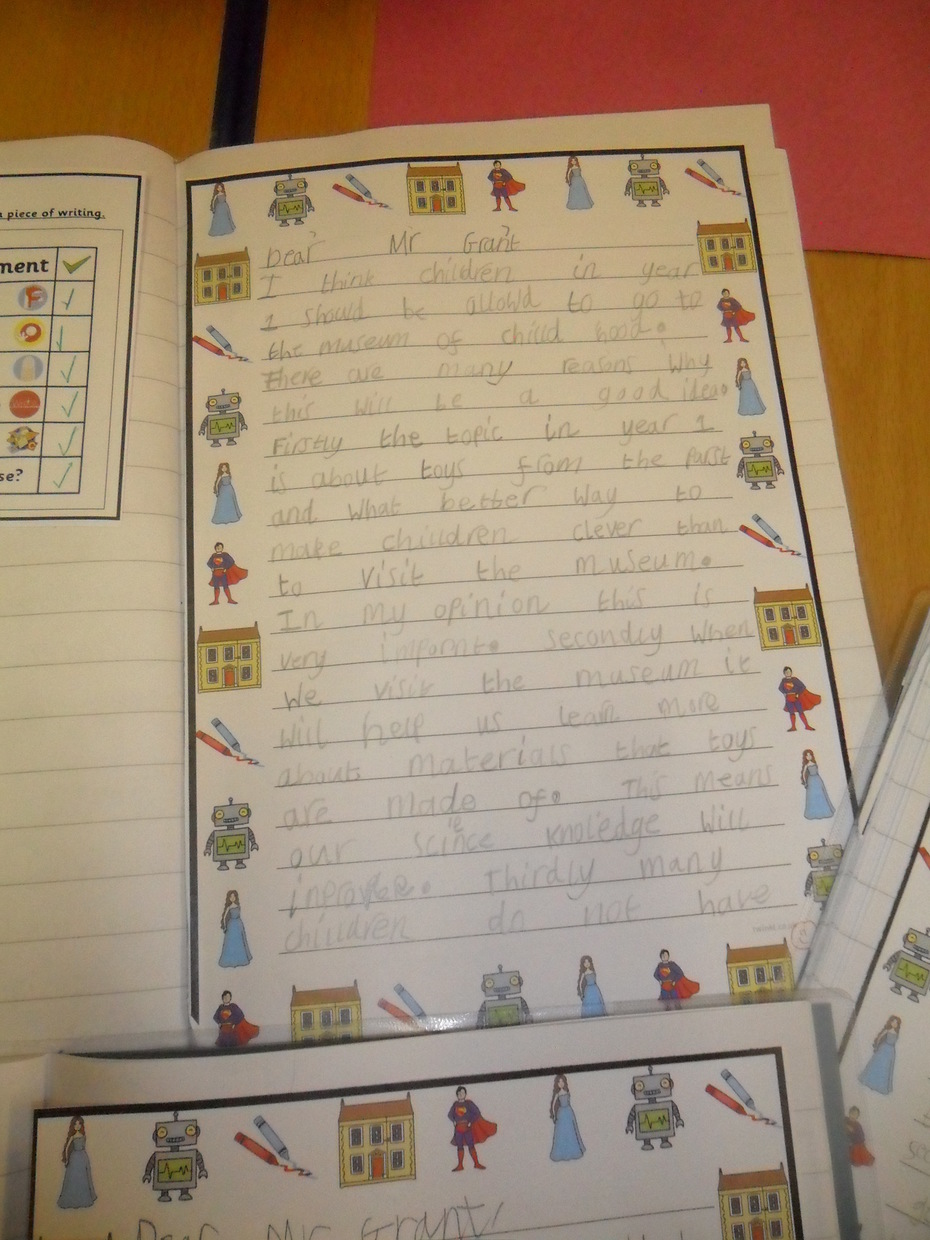 a piece of writing.
ment
se?
Dear Mr Grant
I think children in year
1 should be allowd to go to
the museum of child hood.
There are many reasons why
this will be a good idea.
Firstly the topic in year 1
is about toys from the past
and what better way to
make chiildren clever than
to visit the museum.
In my opinion this is
very impornt. secondly when
we visit the museum it
will help us learn more
about materials that toys
are made of. This means
our science knoledge will
Thirdly many
chiildren do not have
Dear Mr Grant,